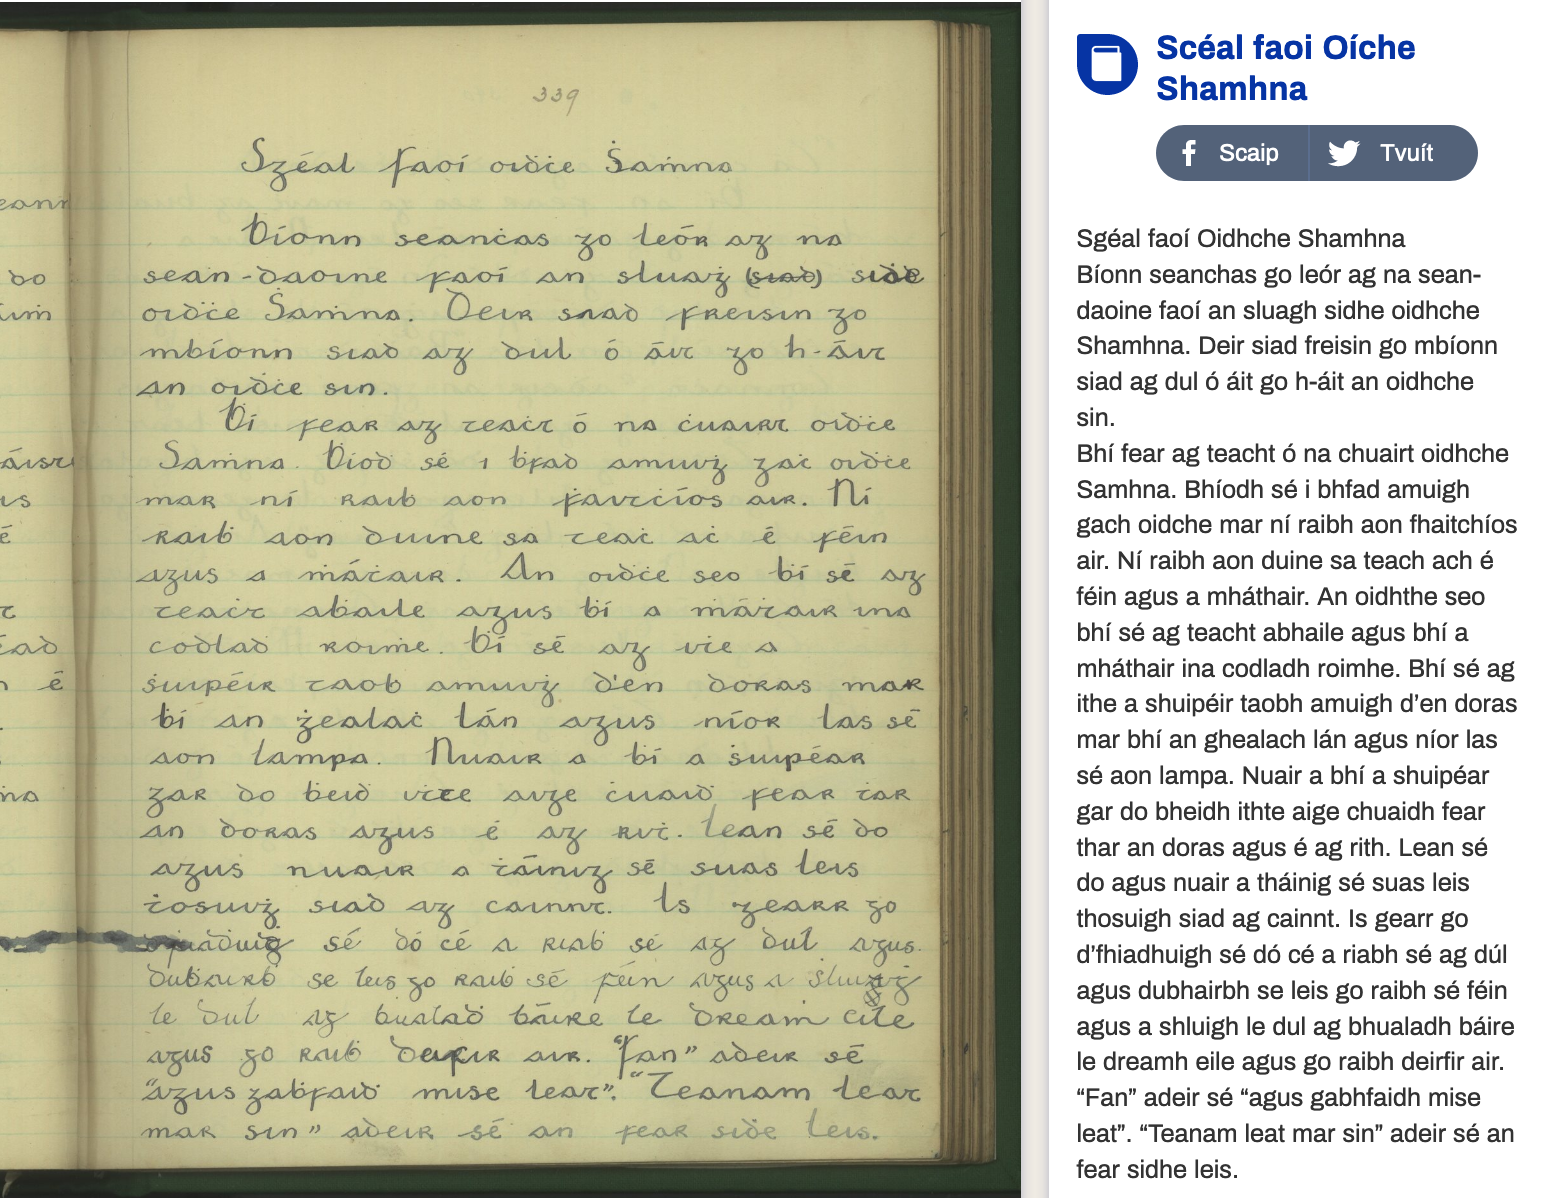 339
Sgéal faoí oiḋċe Ṡaṁna
Bíonn seanċas go leór ag na
sean-daoine faoí an sluaġ siḋe
oiḋċe Ṡaṁna. Deir siad freisin go
mbíonn siad ag dul ó áit go h-áit
an oiḋċe sin.
Ḃí fear ag teaċt ó na ċuairt oiḋċe
Saṁna. Ḃíoḋ sé i ḃfad amuiġ gaċ oiḋċe
mar ní raiḃ aon ḟaitċíos air. Ní
raiḃ aon duine sa teaċ aċ é féin
agus a ṁáṫair. An oiḋċe seo ḃí sé ag
teaċt aḃaile agus ḃí a ṁáṫair ina
codlaḋ roiṁe. Ḃí sé ag iṫe a
ṡuipéir taoḃ amuiġ d'en doras mar
ḃí an ġealaċ lán agus níor las sé
aon lampa. Nuair a ḃí a ṡuipéar
gar do ḃeiḋ iṫte aige ċuaiḋ fear ṫar
an doras agus é ag riṫ. Lean sé do
agus nuair a ṫáinig sé suas leis
ṫosuiġ siad ag cainnt. Is gearr go
sé dó cé a riaḃ sé ag dul agus
duḃairḃ se leis go raiḃ sé féin agus a
le dul ag ḃualaḋ báire le dream eile
agus go raiḃ deifir air. "Fan" adeir sé
"agus gabfaiḋ mise leat". "Teanam leat
mar sin" adeir sé an fear siḋe leis.
Scéal faoi Oíche
Shamhna
Scaip Tvuít
Sgéal faoí Oidhche Shamhna
Bíonn seanchas go leór ag na sean-
daoine faoí an sluagh sidhe oidhche
Shamhna. Deir siad freisin go mbíonn
siad ag dul ó áit go h-áit an oidhche
sin.
Bhí fear ag teacht ó na chuairt oidhche
Samhna. Bhíodh sé i bhfad amuigh
gach oidche mar ní raibh aon fhaitchíos
air. Ní raibh aon duine sa teach ach é
féin agus a mháthair. An oidhthe seo
bhí sé ag teacht abhaile agus bhí a
mháthair ina codladh roimhe. Bhí sé ag
ithe a shuipéir taobh amuigh d'en doras
mar bhí an ghealach lán agus níor las
sé aon lampa. Nuair a bhí a shuipéar
gar do bheidh ithte aige chuaidh fear
thar an doras agus é ag rith. Lean sé
do agus nuair a tháinig sé suas leis
thosuigh siad ag cainnt. Is gearr go
d'fhiadhuigh sé dó cé a riabh sé ag dúl
agus dubhairbh se leis go raibh sé féin
agus a shluigh le dul ag bhualadh báire
le dreamh eile agus go raibh deirfir air.
“Fan” adeir sé “agus gabhfaidh mise
leat”. “Teanam leat mar sin” adeir sé an
fear sidhe leis.